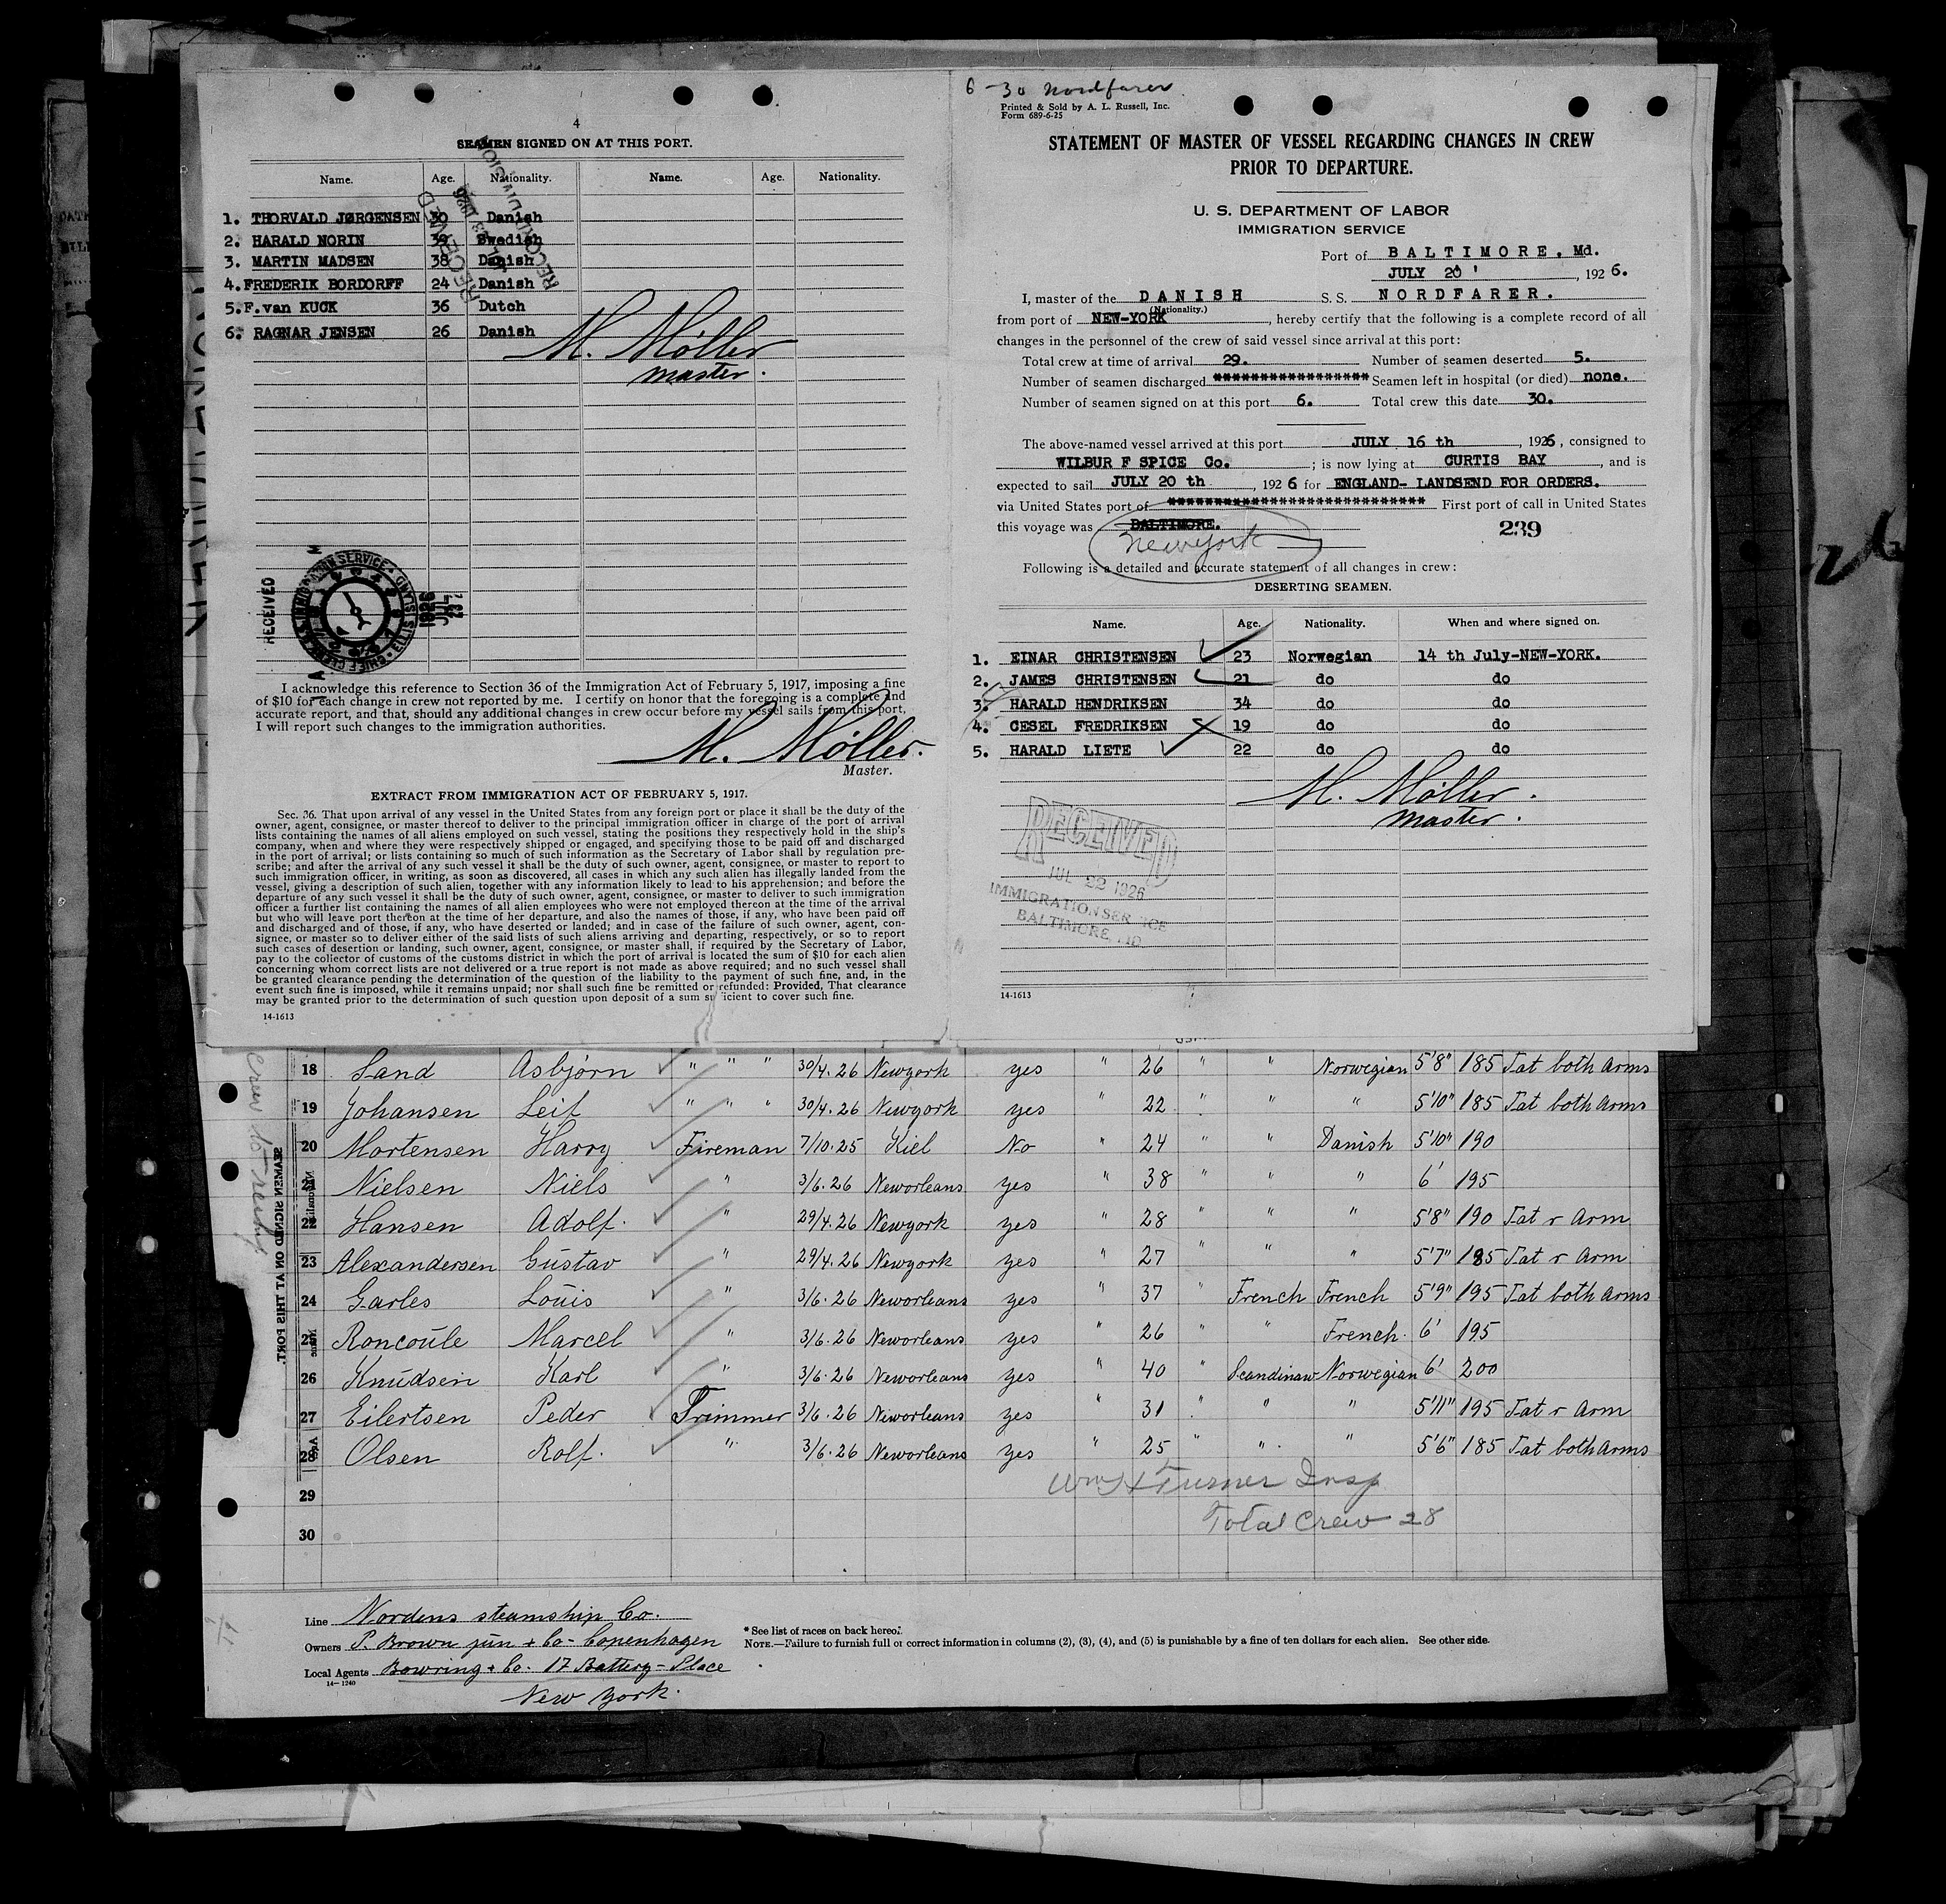 4
SEAMEN SIGNED ON AT THIS PORT.
Name. Age. Nationality. Name. Age. Nationality.
1. THORVALD JØRGENSEN 30 Danish
2. HARALD NORIN 39 Swedish
3. MARTIN MADSEN 38 Danish
4. FREDERIK BORDORFF 24 Danish
5. F.van KUCK 36 Dutch
6. RAGNAR JENSEN 26 Danish
RECEIVED
RECORD DIVISION
M. Möller
master.
RECEIVED
1926 JUL 23
I acknowledge this reference to Section 36 of the Immigration Act of February 5, 1917, imposing a fine
of $10 for each change in crew not reported by me. I certify on honor that the foregoing is a complete and
accurate report, and that, should any additional changes in crew occur before my vessel sails from this port,
I will report such changes to the immigration authorities.
M. Möller.
Master.
EXTRACT FROM IMMIGRATION ACT OF FEBRUARY 5, 1917.
Sec. 36. That upon arrival of any vessel in the United States from any foreign port or place it shall be the duty of the
owner, agent, consignee, or master thereof to deliver to the principal immigration officer in charge of the port of arrival
lists containing the names of all aliens employed on such vessel, stating the positions they respectively hold in the ship's
company, when and where they were respectively shipped or engaged, and specifying those to be paid off and discharged
in the port of arrival; or lists containing so much of such information as the Secretary of Labor shall by regulation pre-
scribe; and after the arrival of any such vessel it shall be the duty of such owner, agent, consignee, or master to report to
such immigration officer, in writing, as soon as discovered, all cases in which any such alien has illegally landed from the
vessel, giving a description of such alien, together with any information likely to lead to his apprehension; and before the
departure of any such vessel it shall be the duty of such owner, agent, consignee, or master to deliver to such immigration
officer a further list containing the names of all alien employees who were not employed thereon at the time of the arrival
but who will leave port thereon at the time of her departure, and also the names of those, if any, who have been paid off
and discharged and of those, if any, who have deserted or landed; and in case of the failure of such owner, agent, con-
signee, or master so to deliver either of the said lists of such aliens arriving and departing, respectively, or so to report
such cases of desertion or landing, such owner, agent, consignee, or master shall, if required by the Secretary of Labor,
pay to the collector of customs of the customs district in which the port of arrival is located the sum of $10 for each alien
concerning whom correct lists are not delivered or a true report is not made as above required; and no such vessel shall
be granted clearance pending the determination of the question of the liability to the payment of such fine, and, in the
event such fine is imposed, while it remains unpaid; nor shall such fine be remitted or refunded: Provided, That clearance
may be granted prior to the determination of such question upon deposit of a sum sufficient to cover such fine.
14-1613
6-30 Nordfarer
Printed & Sold by A. L. Russell, Inc.
Form 689-6-25
STATEMENT OF MASTER OF VESSEL REGARDING CHANGES IN CREW
PRIOR TO DEPARTURE.
U. S. DEPARTMENT OF LABOR
IMMIGRATION SERVICE
Port of BALTIMORE, Md.
JULY 20', 1926.
I, master of the DANISH S. S. NORDFARER.
(Nationality.)
from port of NEW-YORK, hereby certify that the following is a complete record of all
changes in the personnel of the crew of said vessel since arrival at this port:
Total crew at time of arrival 29. Number of seamen deserted 5.
Number of seamen discharged ***************** Seamen left in hospital (or died) none.
Number of seamen signed on at this port 6. Total crew this date 30.
The above-named vessel arrived at this port JULY 16 th, 1926, consigned to
WILBUR F SPICE Co.; is now lying at CURTIS BAY, and is
expected to sail JULY 20 th, 1926 for ENGLAND- LANDSEND FOR ORDERS.
via United States port of **************************** First port of call in United States
this voyage was BALTIMORE. 239
New York
Following is a detailed and accurate statement of all changes in crew:
DESERTING SEAMEN.
Name. Age. Nationality. When and where signed on.
1. EINAR CHRISTENSEN 23 Norwegian 14 th July-NEW-YORK.
2. JAMES CHRISTENSEN 21 do do
3. HARALD HENDRIKSEN 34 do do
4. GESEL FREDRIKSEN 19 do do
5. HARALD LIETE 22 do do
M. Möller.
master.
RECEIVED
JUL 22 1926
IMMIGRATION SERVICE
BALTIMORE, MD.
14-1613
18 Sand Asbjørn " " " 30/4.26 Newyork yes " 26 " " Norwegian 5'8" 185 Tat both Arms
19 Johansen Leif " " " 30/4.26 Newyork yes " 22 " " " 5'10" 185 Tat both Arms
20 Mortensen Harry Fireman 7/10.25 Kiel No " 24 " " Danish 5'10" 190
21 Nielsen Niels " 3/6.26 Neworleans yes " 38 " " " 6' 195
22 Hansen Adolf. " 29/4.26 Newyork yes " 28 " " " 5'8" 190 Tat r Arm
23 Alexandersen Gustav " 29/4.26 Newyork yes " 27 " " " 5'7" 185 Tat r Arm
24 Garles Louis " 3/6.26 Neworleans yes " 37 " French French 5'9" 195 Tat both Arms
25 Roncoule Marcel " 3/6.26 Neworleans yes " 26 " " French. 6' 195
26 Knudsen Karl " 3/6.26 Neworleans yes " 40 " Scandinaw Norwegian 6' 200
27 Eilertsen Peder Trimmer 3/6.26 Neworleans yes " 31 " " " 5'11" 195 Tat r Arm
28 Olsen Rolf. " 3/6.26 Neworleans yes " 25 " " " 5'6" 185 Tat both Arms
29
30
Wm H Turner Insp
Total Crew 28
SEAMEN SIGNED ON AT THIS PORT.
Line Nordens steamship Co.
Owners P. Brown jun + Co - Copenhagen
Local Agents Bowring + Co. 17 Battery-Place
14-1240
New York.
* See list of races on back hereof.
NOTE.—Failure to furnish full or correct information in columns (2), (3), (4), and (5) is punishable by a fine of ten dollars for each alien. See other side.